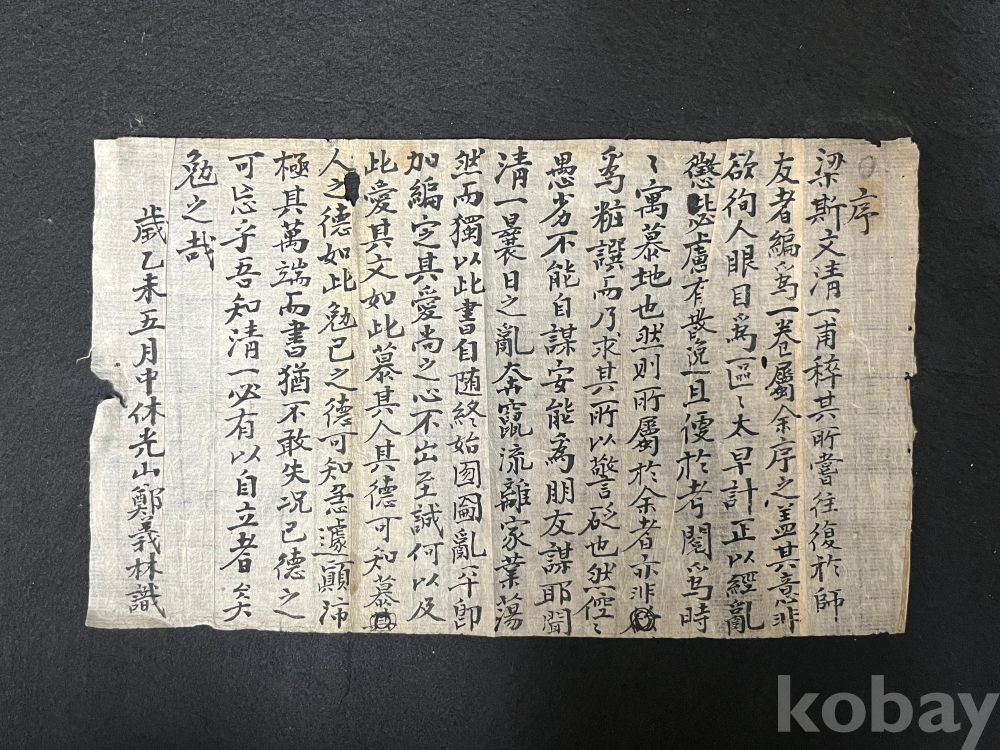 序
梁斯文清一甫稡其所嘗往復於師
友者編爲一卷屬余序之盖其意非
欲徇人眼目爲區〻太早計正以經亂
懲毖慮有散逸且便於考閱爲時
〻寓慕地也然則所屬於余者亦非
爲粧譔而乃求其所以警砭也然倥〻
愚劣不能自謀安能爲朋友謀耶聞
清一曩日之亂奔竄流離家業蕩
然而獨以此書自随終始囫圇亂平卽
加編定其愛尚之心不出至誠何以及
此愛其文如此慕其人其德可知慕
人之德如此勉己之德可知急遽顚沛
極其萬端而書猶不敢失况己德之
可忘乎吾知清一必有以自立者矣
勉之哉
歲乙未五月中休光山鄭義林識
kobay